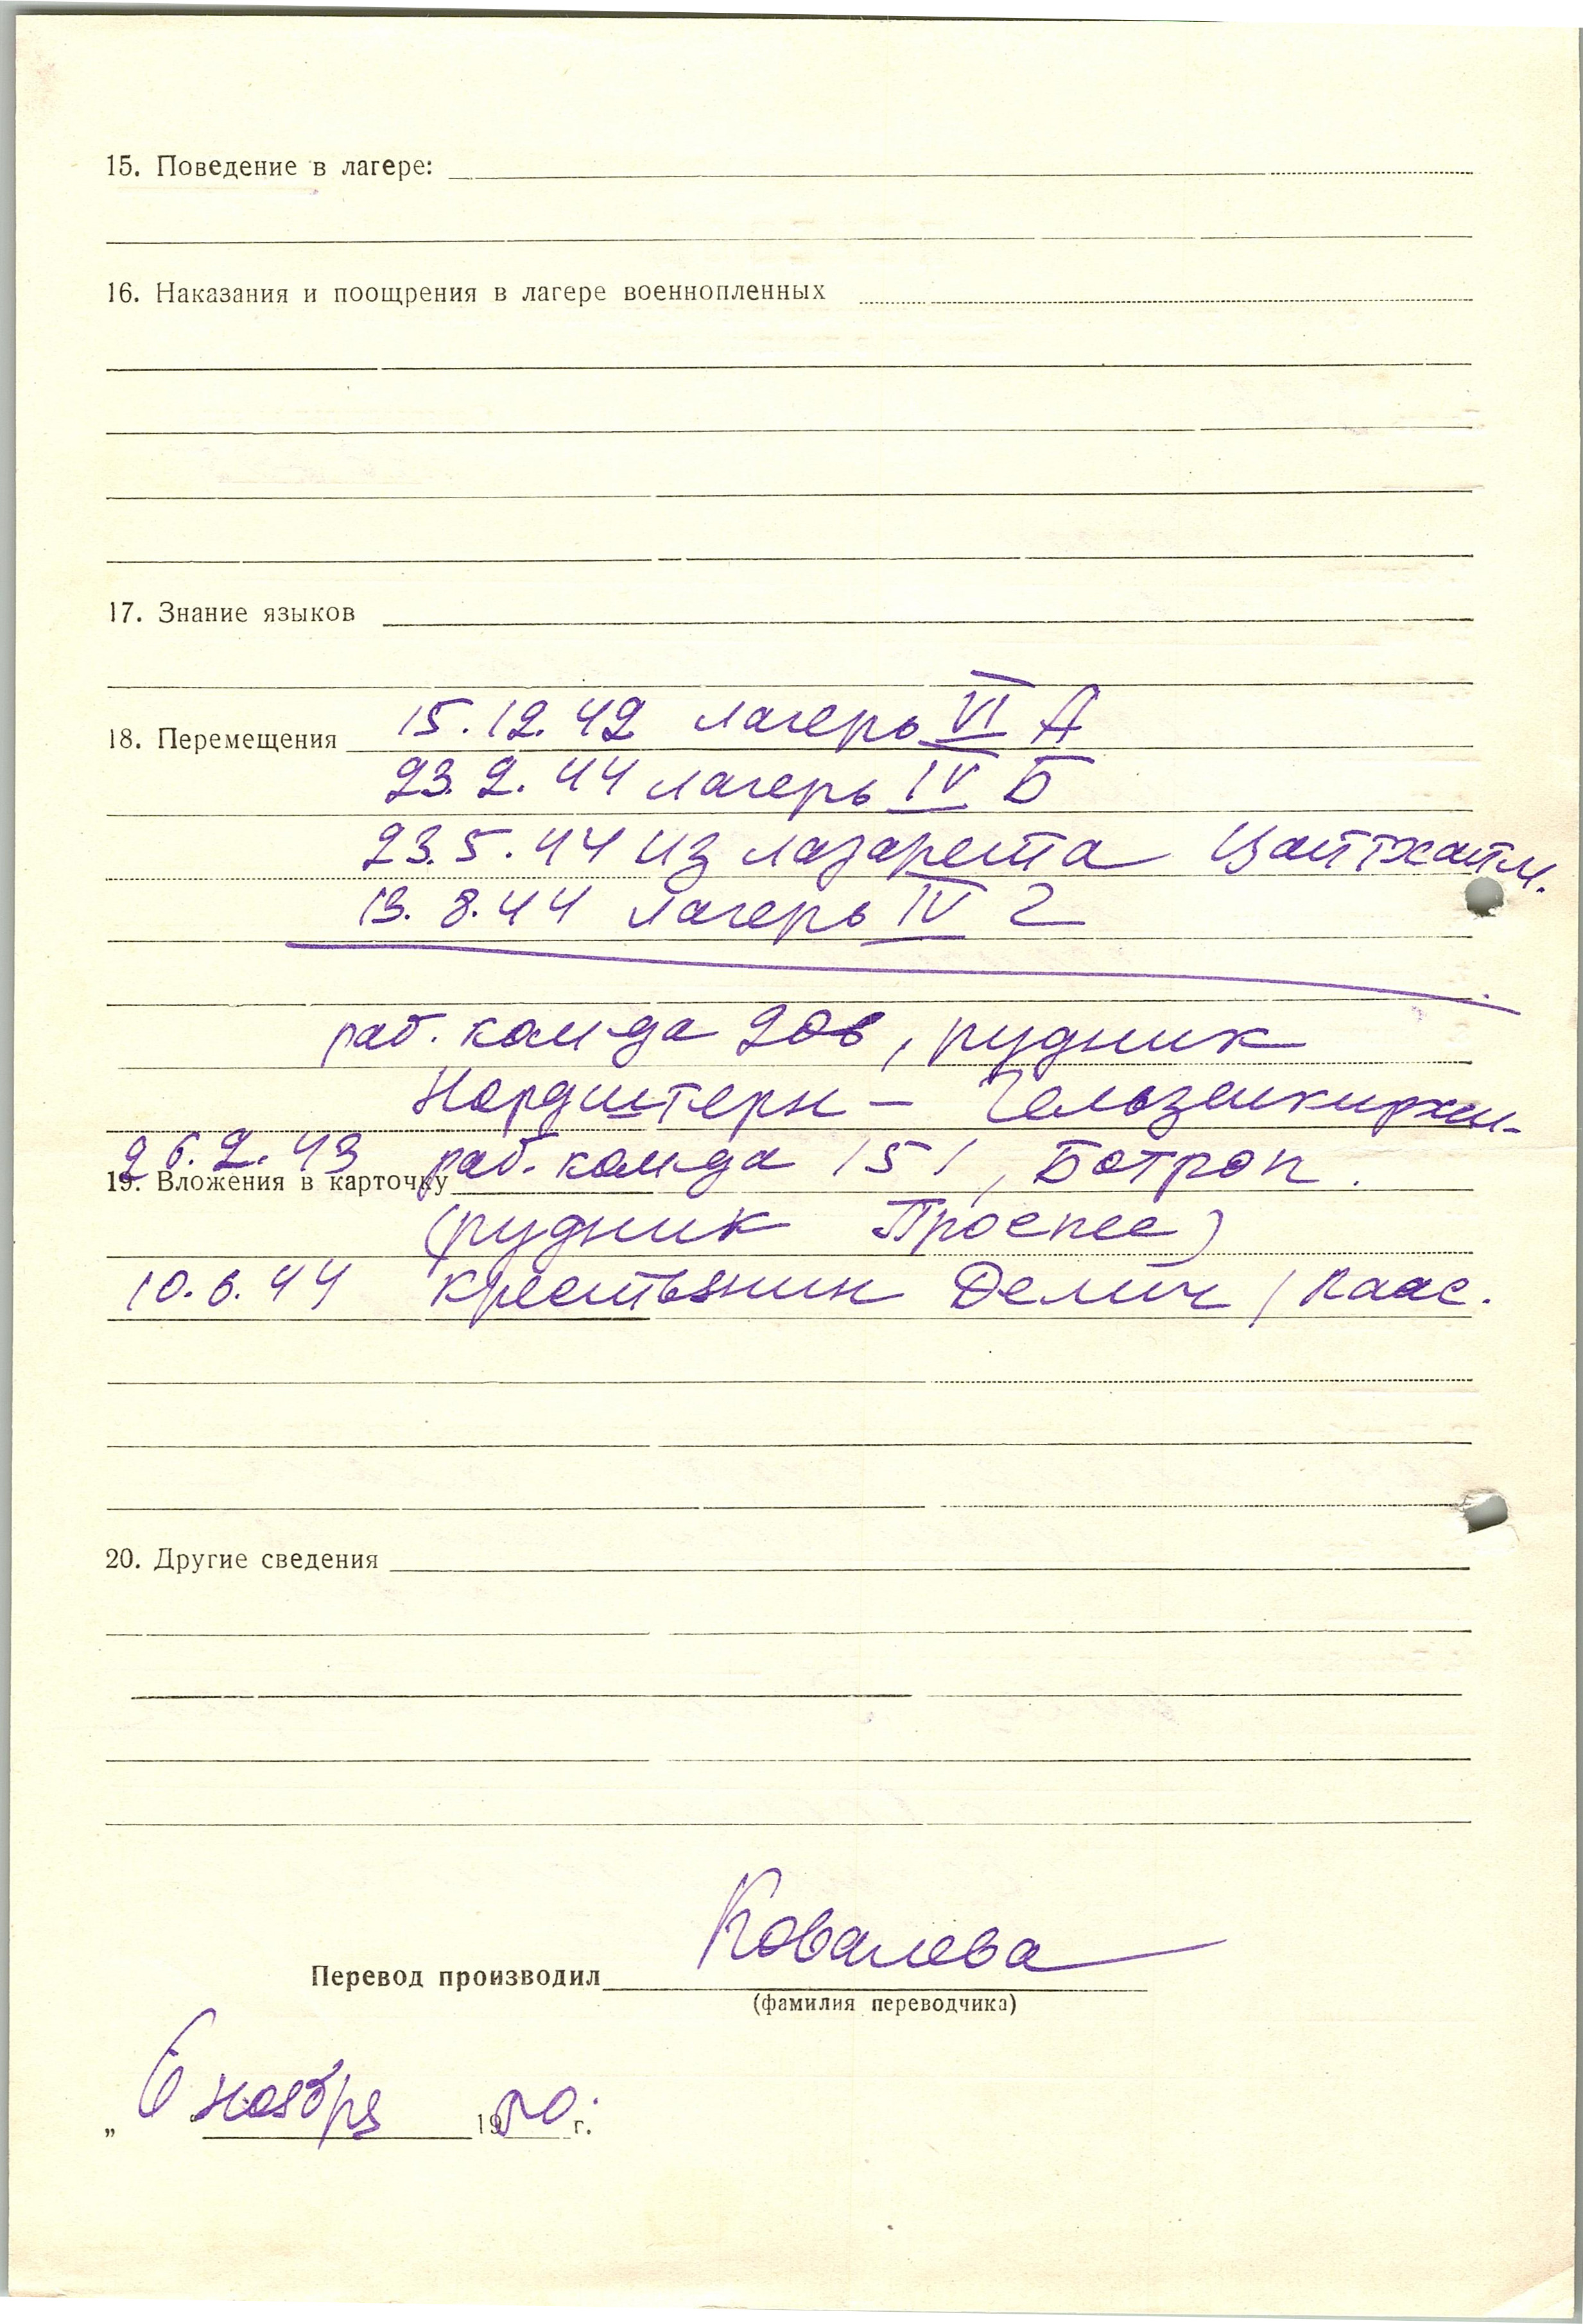 15. Поведение в лагере:
16. Наказания и поощрения в лагере военнопленных
17. Знание языков
15.12.42 лагерь VI А
18. Перемещения
23.2.44 лагерь IV Б
23.5.44 из лазарета Цайтхайм.
13.8.44 лагерь IV Г
раб. ком-да 206, рудник
Нордштерн – Гельзенкирхен-
26.2.43 раб. ком-да 151, Ботроп.
19. Вложения в карточку
(рудник Проспес)
10.6.44 крестьянин Делич / Каас.
20. Другие сведения
Ковалева
Перевод производил
(фамилия переводчика)
„ 6 ноября 1950 г.